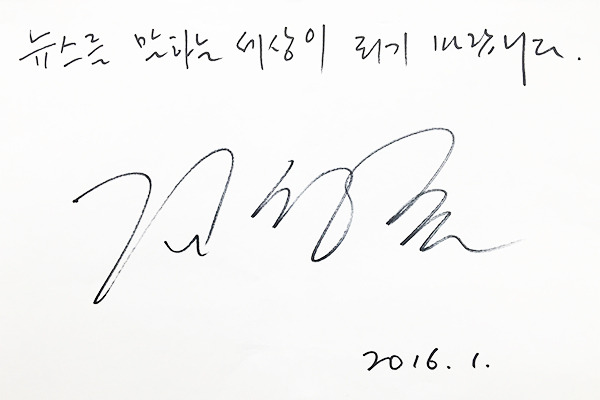 뉴스를 말하는 세상이 되기 바랍니다.
2016. 1.